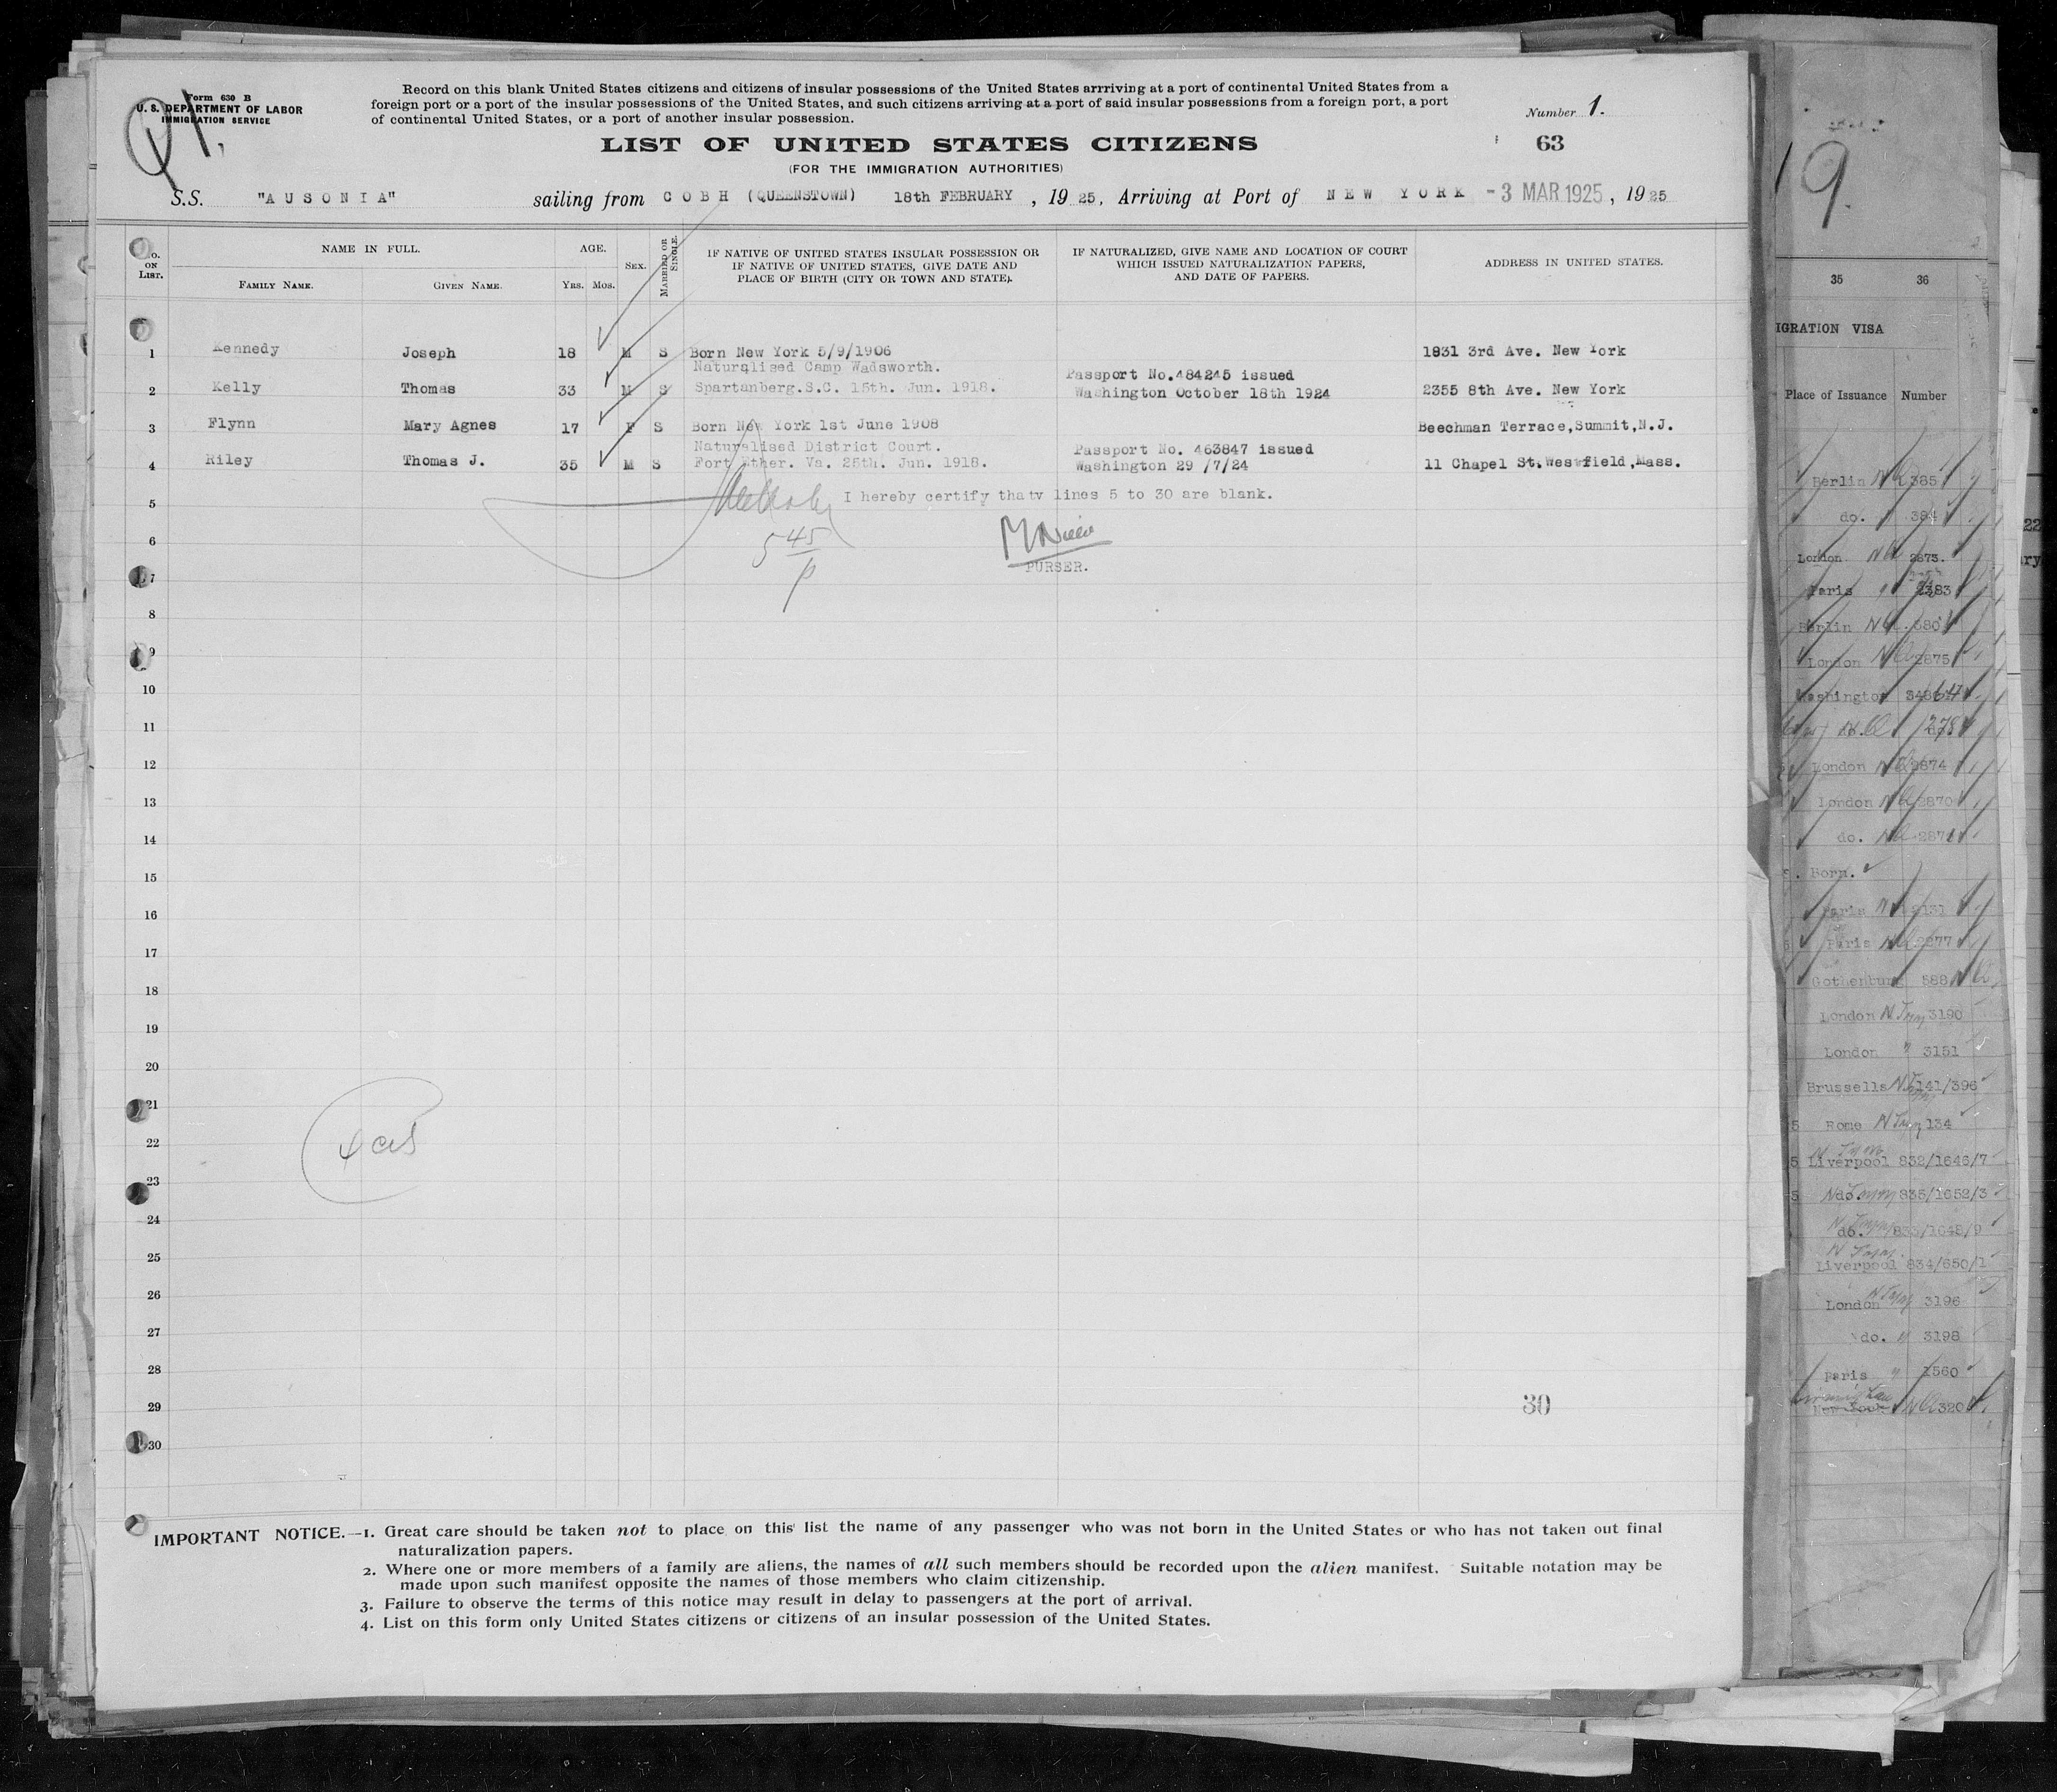 Form 630 B
U. S. DEPARTMENT OF LABOR
IMMIGRATION SERVICE
Record on this blank United States citizens and citizens of insular possessions of the United States arrriving at a port of continental United States from a
foreign port or a port of the insular possessions of the United States, and such citizens arriving at a port of said insular possessions from a foreign port, a port
of continental United States, or a port of another insular possession.
Number 1.
LIST OF UNITED STATES CITIZENS
63
(FOR THE IMMIGRATION AUTHORITIES)
S.S. "AUSONIA" sailing from COBH (QUEENSTOWN) 18th FEBRUARY, 1925, Arriving at Port of NEW YORK - 3 MAR 1925, 1925
No. ON LIST. NAME IN FULL. AGE. SEX. MARRIED OR SINGLE. IF NATIVE OF UNITED STATES INSULAR POSSESSION OR IF NATIVE OF UNITED STATES, GIVE DATE AND PLACE OF BIRTH (CITY OR TOWN AND STATE). IF NATURALIZED, GIVE NAME AND LOCATION OF COURT WHICH ISSUED NATURALIZATION PAPERS, AND DATE OF PAPERS. ADDRESS IN UNITED STATES.
FAMILY NAME. GIVEN NAME. YRS. MOS.
1 Kennedy Joseph 18 M S Born New York 5/9/1906 1831 3rd Ave. New York
Naturalised Camp Wadsworth. Passport No.484245 issued
2 Kelly Thomas 33 M S Spartanberg.S.C. 15th. Jun. 1918. Washington October 18th 1924 2355 8th Ave. New York
3 Flynn Mary Agnes 17 F S Born New York 1st June 1908 Beechman Terrace,Summit,N.J.
Naturalised District Court. Passport No. 463847 issued
4 Riley Thomas J. 35 M S Fort Ether. Va. 25th. Jun. 1918. Washington 29 /7/24 11 Chapel St.Westfield,Mass.
5 I hereby certify thatv lines 5 to 30 are blank.
6 545
7 PURSER.
8
9
10
11
12
13
14
15
16
17
18
19
20
21
22
23
24
25
26
27
28
29 30
30
IMPORTANT NOTICE.—1. Great care should be taken not to place on this list the name of any passenger who was not born in the United States or who has not taken out final
naturalization papers.
2. Where one or more members of a family are aliens, the names of all such members should be recorded upon the alien manifest. Suitable notation may be
made upon such manifest opposite the names of those members who claim citizenship.
3. Failure to observe the terms of this notice may result in delay to passengers at the port of arrival.
4. List on this form only United States citizens or citizens of an insular possession of the United States.
19.
35 36
IGRATION VISA
Place of Issuance Number
Berlin 385
do. 384
London 2873.
Paris 2383
Berlin 380
London 2875
Washington
278
London 2874
London 2870
do. 2871
Born.
Paris
Paris 2277
Gothenburg 588
London 3190
London " 3151
Brussells 141/396
Rome 134
Liverpool 832/1646/7
do. 835/1652/3
do. 833/1648/9
Liverpool 834/650/1
London 3196
do. " 3198
Paris " 1560
New York 320